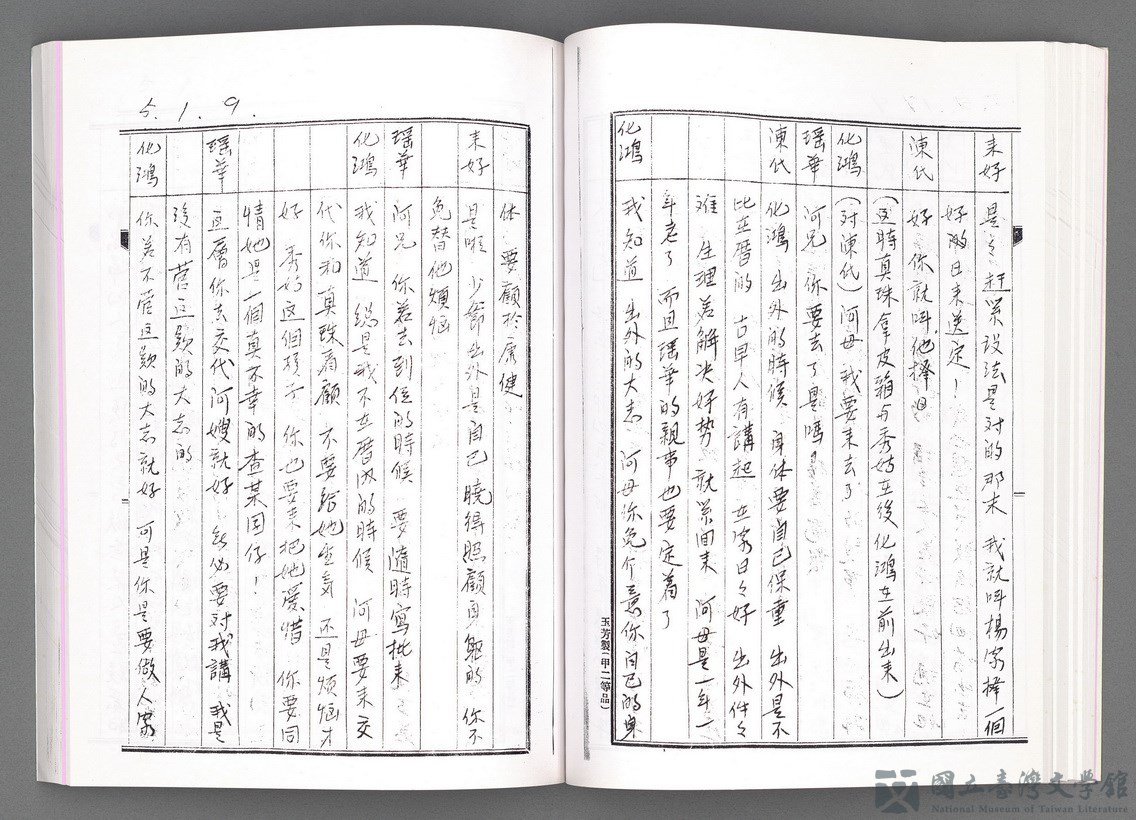 來好 是々 赶緊設法是对的那末 我就叫楊家擇一個
好的日來送定！
陳氏 好 你就叫他擇日
(这時真珠拿皮箱与秀姑在後化鴻在前出來)
化鴻 (对陳氏)阿母 我要來去了
瑶華 阿兄 你要去了是嗎？
陳氏 化鴻 出外的時候 身体要自己保重 出外是不
比在厝的 古早人有講起 在家日々好 出外件々
难 生理若解決好勢 就緊回來 阿母是一年一
年老了 而且瑶華的親事也要定着了
化鴻 我知道 出外的大志 阿母你免介意你自己的身
玉芳製(甲二等品)
5.1.9.
体 要顧於康健
來好 是啦 少爺出外是自己 曉得照顧身軀的 你不
免替他煩惱
瑶華 阿兄 你若去到位的時候 要隨時寫批來
化鴻 我知道 總是我不在厝內的時候 阿母要來交
代你和真珠看顧 不要給她生気 还是煩惱才
好 秀姑这個孩子 你也要來把她愛惜 你要同
情她是一個真不幸的查某囝仔！
瑶華 这層你去交代阿嫂就好 無必要对我講 我是
沒有菅这款的大志的
化鴻 你若不菅这款的大志就好 可是你是要做人家
國立臺灣文學館
National Museum of Taiwan Literature